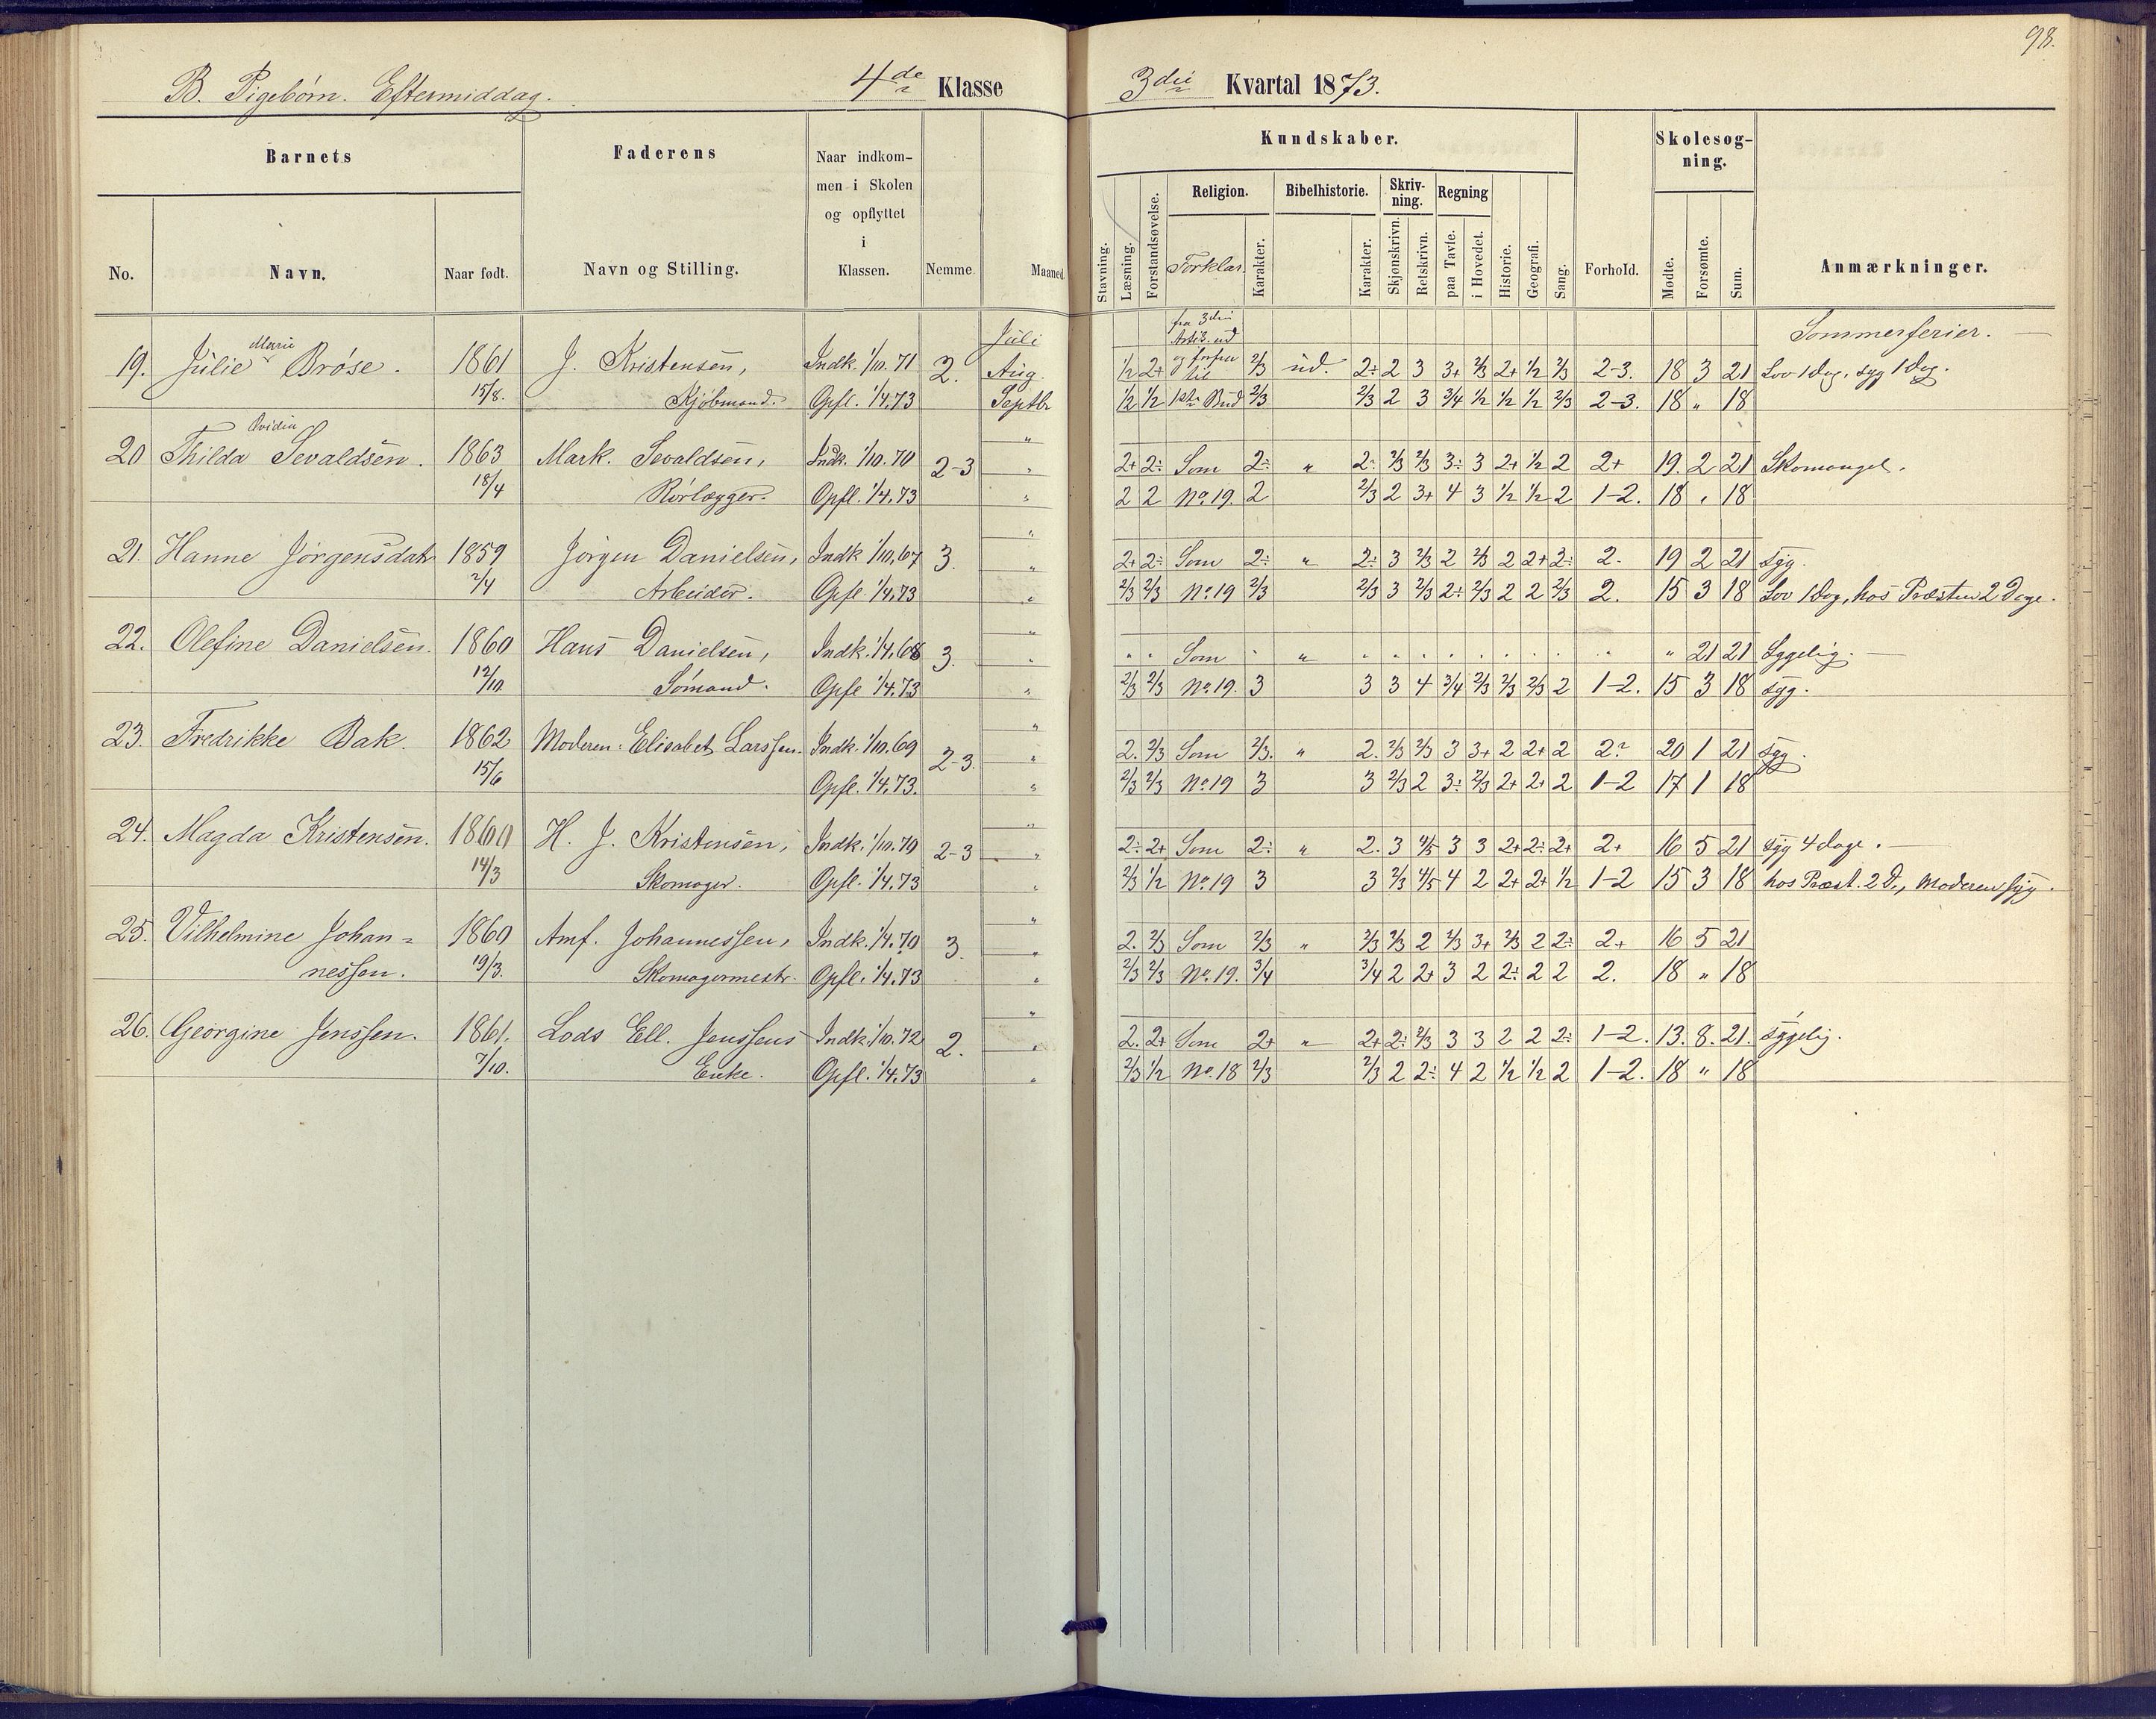 98.
B. Pigebørn. Eftermiddag. 4de Klasse 3die Kvartal 1873.
Barnets Faderens Naar indkom- Kundskaber. Skolesøg-
men i Skolen ning.
og opflyttet Religion. Bibelhistorie. Skriv- Regning
i ning.
No. Navn. Naar født. Navn og Stilling. Klassen. Nemme. Maaned. Stavning. Læsning. Forstandsøvelse. Forklar. Karakter. Karakter. Skjønskrivn. Retskrivn. paa Tavle. i Hovedet. Historie. Geografi. Sang. Forhold. Mødte. Forsømte. Sum. Anmærkninger.
Juli fra 3die Sommerferier. —
Artik. ud
Marie
19. Julie Brøse. 1861 J. Kristensen, Indk. 1/10. 71 2. Aug. 1/2 2+ og forfra til 2/3 ud. 2÷ 2 3 3+ 2/3 2+ 1/2 2/3 2-3. 18 3 21 Lov 1 Dag, syg 1 Dag.
15/8. Kjøbmand. Opfl. 1/4. 73 Septbr 1/2 1/2 1ste Bud 2/3 2/3 2 3 3/4 1/2 1/2 1/2 2/3 2-3. 18 " 18
Ovidia "
20 Thilda Sevaldsen. 1863 Mark. Sevaldsen, Indk. 1/10. 70 2-3 " 2+ 2÷ Som 2÷ " 2÷ 2/3 2/3 3÷ 3 2+ 1/2 2 2+ 19. 2 21 Skomangel.
18/4 Rørlægger. Opfl. 1/4. 73 " 2 2 No. 19. 2 2/3 2 3+ 4 3 1/2 1/2 2 1-2. 18 " 18
"
21. Hanne Jørgensdatr 1859 Jørgen Danielsen, Indk 1/10. 67 3. " 2+ 2÷ Som 2÷ " 2÷ 3 2/3 2 2/3 2 2+ 2÷ 2. 19 2 21 syg.
2/4 Arbeider. Opfl 1/4. 73 " 2/3 2/3 No. 19 2/3 2/3 3 2/3 2÷ 2/3 2 2 2/3 2. 15 3 18 Lov 1 Dag, hos Præsten 2 Dage.
"
22. Olefine Danielsen. 1860 Hans Danielsen, Indk. 1/4. 68 3. " " " Som " " " " " " " " " " " " 21 21 Sygelig. —
12/10. Sømand. Opfl 1/4. 73 " 2/3 2/3 No. 19. 3 3 3 4 3/4 2/3 2/3 2/3 2 1-2. 15 3 18 syg.
"
23. Fredrikke Bak. 1862 Moderen: Elisabet Larssen. Indk. 1/10. 69 2-3. " 2. 2/3 Som 2/3. " 2. 2/3 2/3 3 3+ 2 2+ 2 2? 20 1 21 syg.
15/6 Opfl. 1/4. 73. " 2/3 2/3 No. 19 3 3 2/3 2 3÷ 2/3 2+ 2+ 2 1-2 17 1 18
"
24. Magda Kristensen. 1860 H. J. Kristensen, Indk. 1/10. 70 2-3 " 2÷ 2+ Som 2÷ " 2. 3 4/5 3 3 2+ 2÷ 2+ 2+ 16 5 21 syg 4 dage. —
14/3 Skomager. Opfl. 1/4. 73 " 2/3 1/2 No. 19 3 3 2/3 4/5 4 2 2+ 2+ 1/2 1-2 15 3 18 hos Præst. 2 D., Moderen syg.
"
25. Vilhelmine Johan= 1860 Amf. Johannessen, Indk. 1/4. 70 3. " 2. 2/3 Som 2/3 " 2/3 2/3 2 2/3 3+ 2/3 2 2÷ 2+ 16 5 21
nessen. 19/3. Skomagermestr. Opfl. 1/4. 73 " 2/3 2/3 No. 19. 3/4 3/4 2 2+ 3 2 2÷ 2 2 2. 18 " 18
"
26. Georgine Jenssen. 1861. Lods Ell. Jenssens Indk. 1/10. 72 2. " 2. 2+ Som 2+ " 2+ 2÷ 2/3 3 3 2 2 2÷ 1-2. 13. 8. 21. sygelig.
7/10. Enke. Opfl. 1/4. 73 " 2/3 1/2 No. 18 2/3 2/3 2 2÷ 4 2 1/2 1/2 2 1-2. 18 " 18